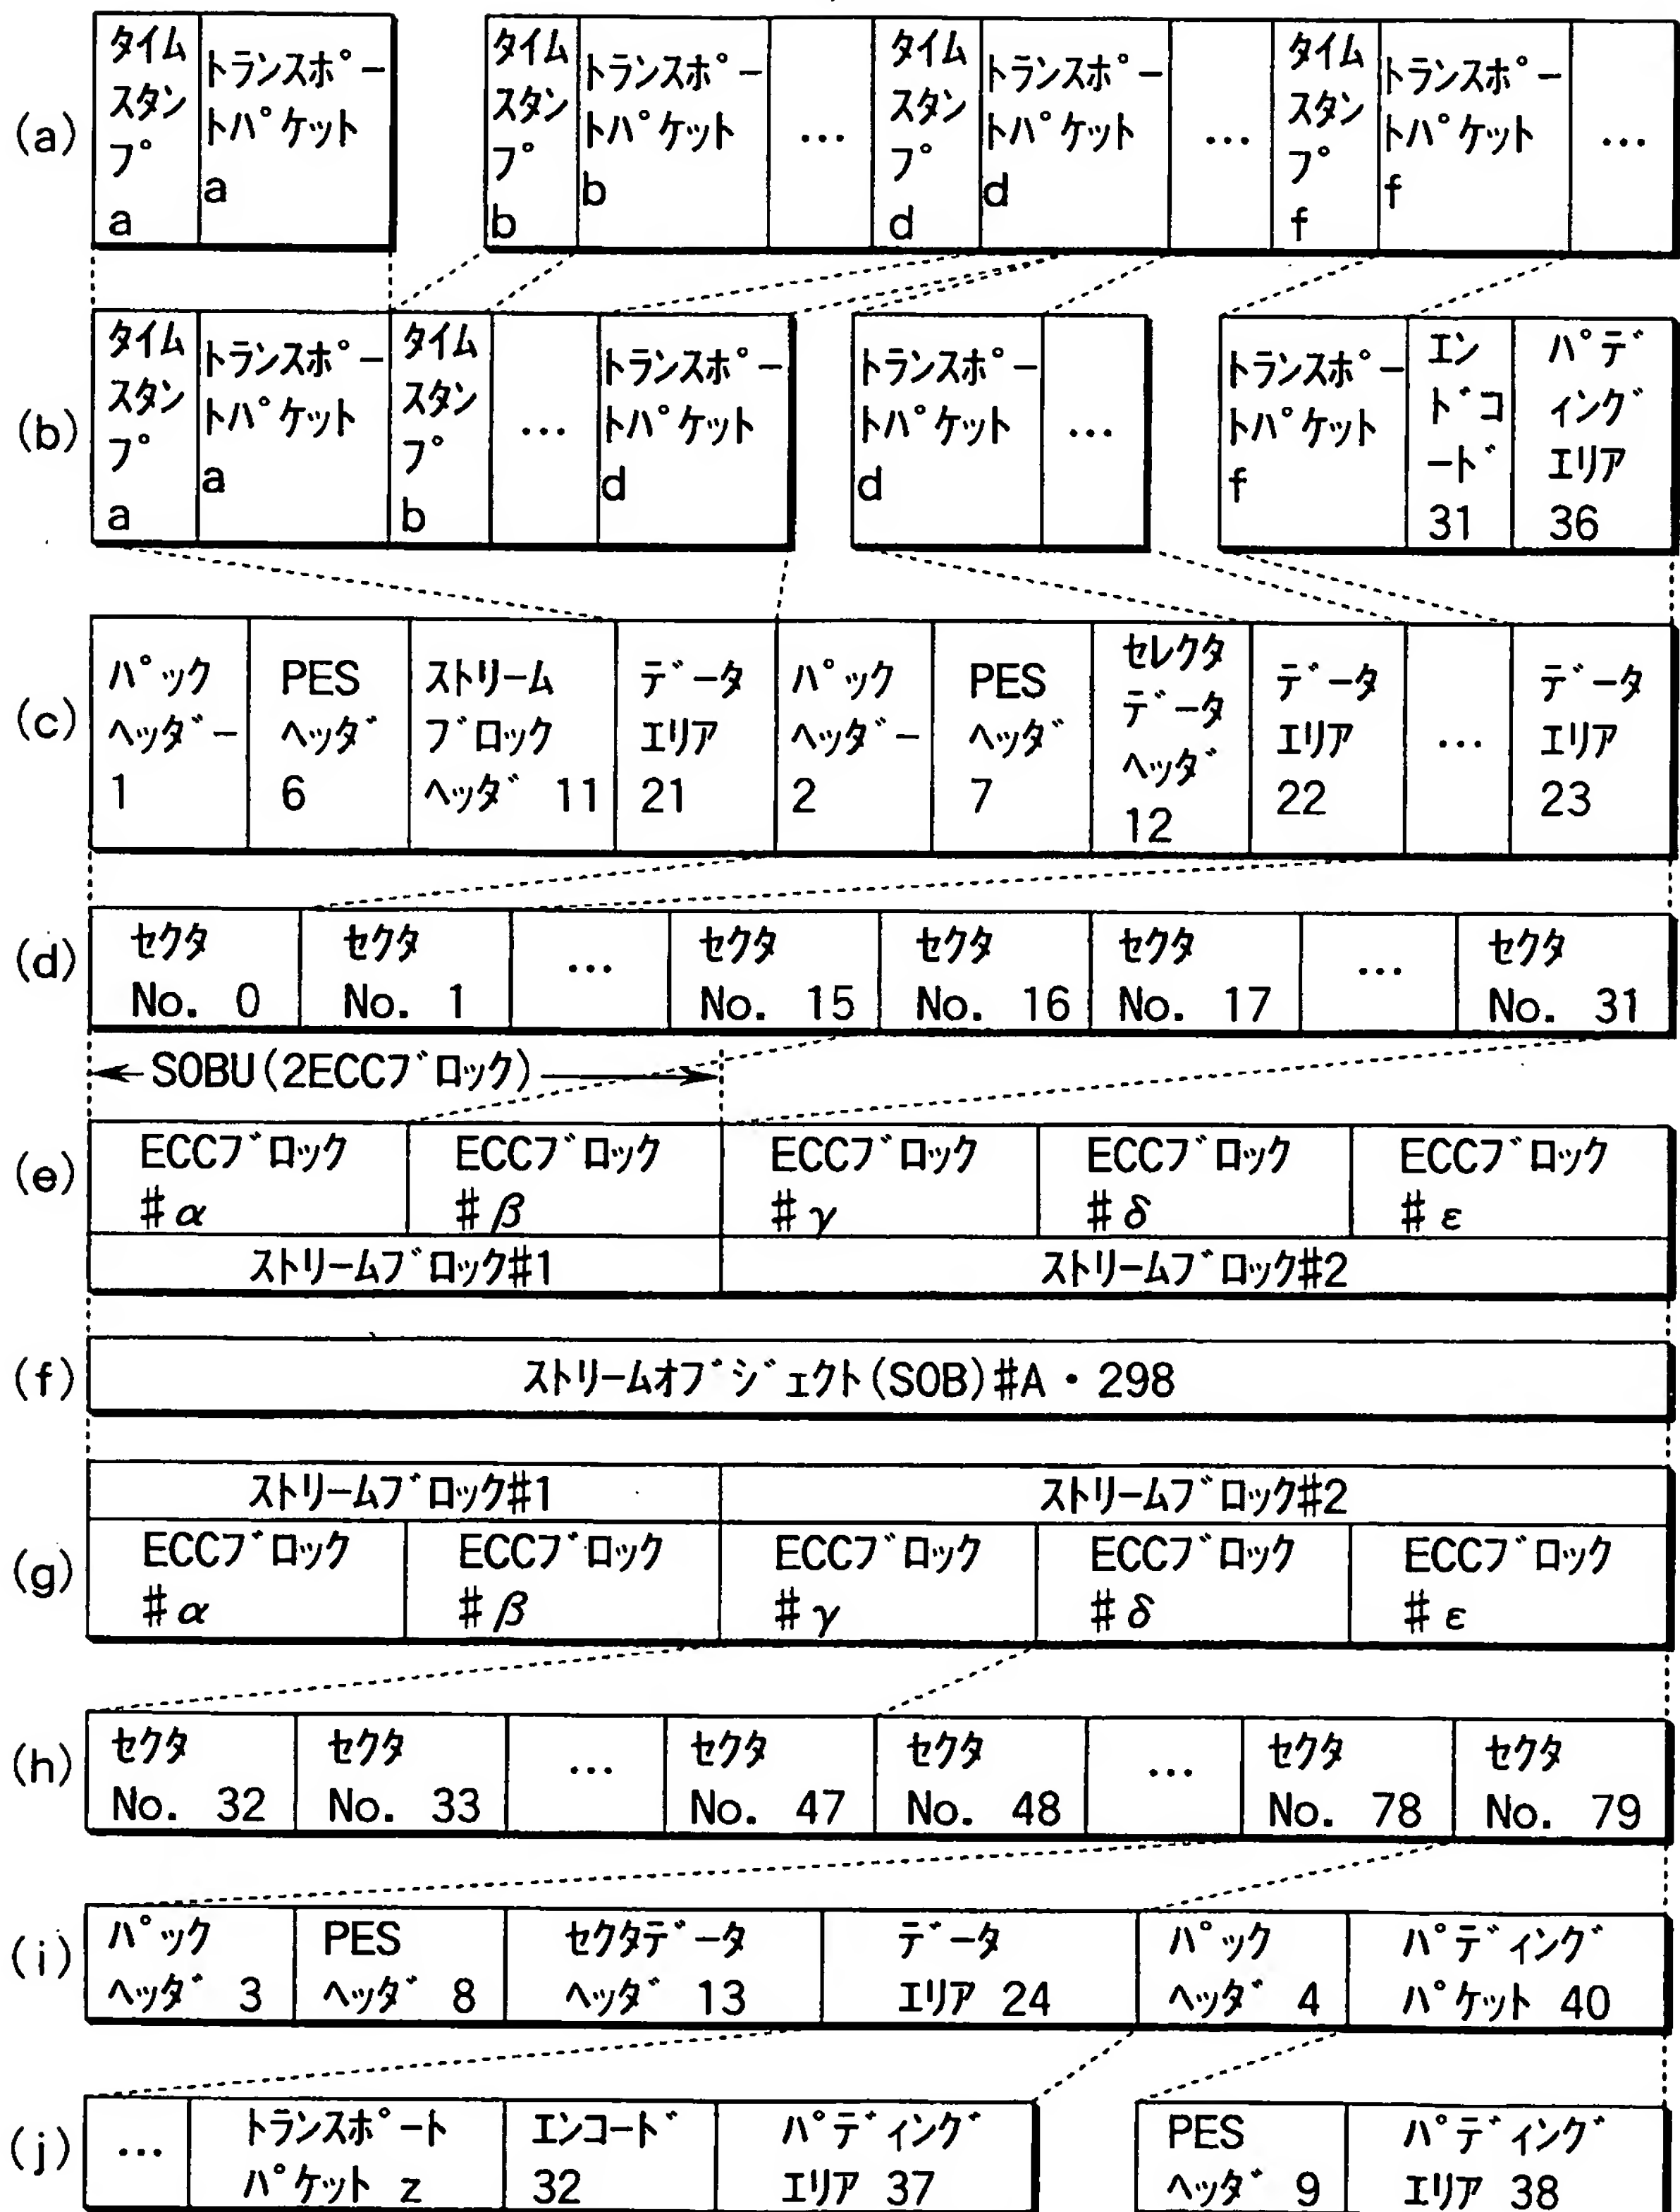 (a)
タイムスタンプ a
トランスポートパケット a
タイムスタンプ b
トランスポートパケット b
...
タイムスタンプ d
トランスポートパケット d
...
タイムスタンプ f
トランスポートパケット f
...
(b)
タイムスタンプ a
トランスポートパケット a
タイムスタンプ b
...
トランスポートパケット d
トランスポートパケット d
...
トランスポートパケット f
エンドコード 31
パディングエリア 36
(c)
パックヘッダー 1
PESヘッダ 6
ストリームブロックヘッダ 11
データエリア 21
パックヘッダー 2
PESヘッダ 7
セレクタデータヘッダ 12
データエリア 22
...
データエリア 23
(d)
セクタ No. 0
セクタ No. 1
...
セクタ No. 15
セクタ No. 16
セクタ No. 17
...
セクタ No. 31
SOBU(2ECCブロック)
(e)
ECCブロック #α
ECCブロック #β
ECCブロック #γ
ECCブロック #δ
ECCブロック #ε
ストリームブロック#1
ストリームブロック#2
(f)
ストリームオブジェクト(SOB)#A・298
ストリームブロック#1
ストリームブロック#2
(g)
ECCブロック #α
ECCブロック #β
ECCブロック #γ
ECCブロック #δ
ECCブロック #ε
(h)
セクタ No. 32
セクタ No. 33
...
セクタ No. 47
セクタ No. 48
...
セクタ No. 78
セクタ No. 79
(i)
パックヘッダ 3
PESヘッダ 8
セクタデータヘッダ 13
データエリア 24
パックヘッダ 4
パディングパケット 40
(j)
...
トランスポートパケット z
エンコード 32
パディングエリア 37
PESヘッダ 9
パディングエリア 38